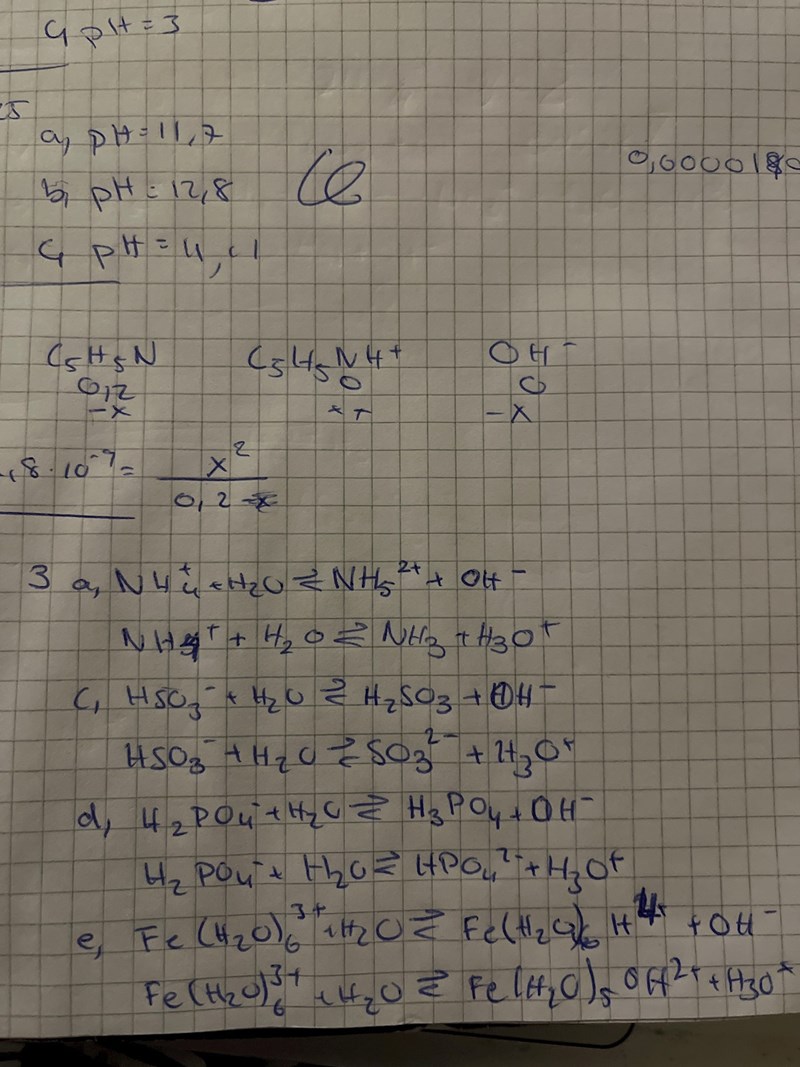 c, pH = 3
25
a, pH = 11,7
b, pH = 12,8
0,0000180
c, pH = 4,1
C₅H₅N C₅H₅NH⁺ OH⁻
0,2 0 0
-x x+ -x
,8·10⁻⁹ = x² / 0,2
3 a, NH₄⁺ + H₂O ⇌ NH₅²⁺ + OH⁻
NH₄⁺ + H₂O ⇌ NH₃ + H₃O⁺
c, HSO₃⁻ + H₂O ⇌ H₂SO₃ + OH⁻
HSO₃⁻ + H₂O ⇌ SO₃²⁻ + H₃O⁺
d, H₂PO₄⁻ + H₂O ⇌ H₃PO₄ + OH⁻
H₂PO₄⁻ + H₂O ⇌ HPO₄²⁻ + H₃O⁺
e, Fe(H₂O)₆³⁺ + H₂O ⇌ Fe(H₂O)₆H⁴⁺ + OH⁻
Fe(H₂O)₆³⁺ + H₂O ⇌ Fe(H₂O)₅OH²⁺ + H₃O⁺